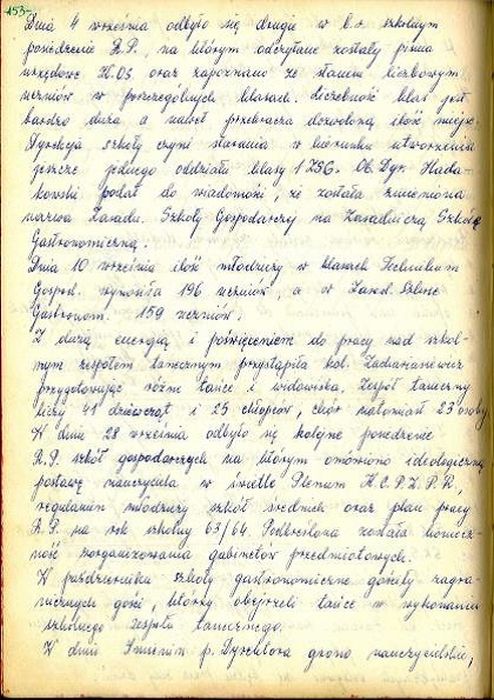 153-
Dnia 4 września odbyło się drugie w b.r. szkolnym
posiedzenie R.P., na którym odczytane zostały pisma
urzędowe K.OS. oraz zapoznano ze stanem liczbowym
uczniów w poszczególnych klasach. Liczebność klas jest
bardzo duża a nawet przekracza dozwoloną ilość miejsc.
Dyrekcja szkoły czyni starania w kierunku utworzenia
jeszcze jednego oddziału klasy I ZSG. Ob. Dyr. Hada-
kowski podał do wiadomości, że została zmieniona
nazwa Zasadn. Szkoły Gospodarczej na Zasadniczą Szkołę
Gastronomiczną.
Dnia 10 września ilość młodzieży w klasach Technikum
Gospod. wynosiła 196 uczniów, a w Zasad. Szkole
Gastronom. 159 uczniów.
Z dużą energią i poświęceniem do pracy nad szkol-
nym zespołem tanecznym przystąpiła kol. Zachariasiewicz
przygotowując różne tańce i widowiska. Zespół taneczny
liczy 41 dziewcząt i 25 chłopców, chór natomiast 23 osoby
W dniu 28 września odbyło się kolejne posiedzenie
R.P. szkół gospodarczych na którym omówiono ideologiczną
postawę nauczyciela w świetle Plenum K.C.P.Z.P.R,
regulamin młodzieży szkół średnich oraz plan pracy
R.P. na rok szkolny 63/64. Podkreślona została koniecz-
ność zorganizowania gabinetów przedmiotowych.
W październiku szkołę gastronomiczne gościły zagra-
nicznych gości, którzy obejrzeli tańce w wykonaniu
szkolnego zespołu tanecznego.
W dniu Imienin p. Dyrektora grono nauczycielskie,